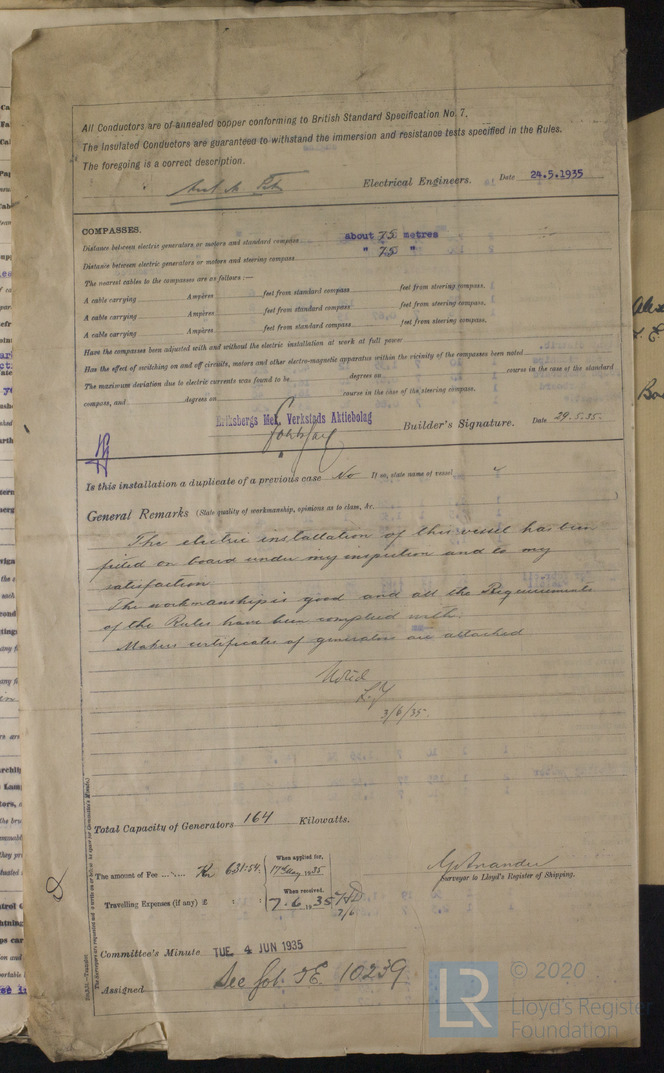 All Conductors are of annealed copper conforming to British Standard Specification No. 7.
The Insulated Conductors are guaranteed to withstand the immersion and resistance tests specified in the Rules.
The foregoing is a correct description.
Electrical Engineers. Date 24.5.1935
COMPASSES.
Distance between electric generators or motors and standard compass about 75 metres
Distance between electric generators or motors and steering compass " 75 "
The nearest cables to the compasses are as follows:—
A cable carrying Ampères feet from standard compass feet from steering compass.
A cable carrying Ampères feet from standard compass feet from steering compass.
A cable carrying Ampères feet from standard compass feet from steering compass.
Have the compasses been adjusted with and without the electric installation at work at full power
Has the effect of switching on and off circuits, motors and other electro-magnetic apparatus within the vicinity of the compasses been noted
The maximum deviation due to electric currents was found to be degrees on course in the case of the standard
compass, and degrees on course in the case of the steering compass.
Eriksbergs Mek. Verkstads Aktiebolag
Builder's Signature. Date 29.5.35.
Is this installation a duplicate of a previous case No If so, state name of vessel
General Remarks (State quality of workmanship, opinions as to class, &c.
The electric installation of this vessel has been
fitted on board under my inspection and to my
satisfaction.
The workmanship is good and all the Requirements
of the Rules have been complied with.
Makers certificates of generators are attached
Noted
3/6/35.
Total Capacity of Generators 164 Kilowatts.
The amount of Fee ... Kr. 631:54. When applied for, 17th May 1935
Travelling Expenses (if any) £ : : When received, 7.6.1935
Surveyor to Lloyd's Register of Shipping.
Committee's Minute TUE 4 JUN 1935
Assigned See Got. F.E. 10239
LR © 2020
Lloyd's Register
Foundation